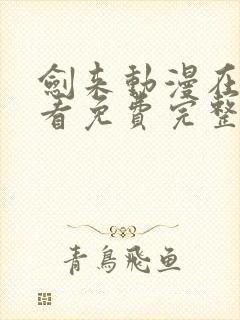 劍来動漫在
看免費完整
青鳥飛鱼